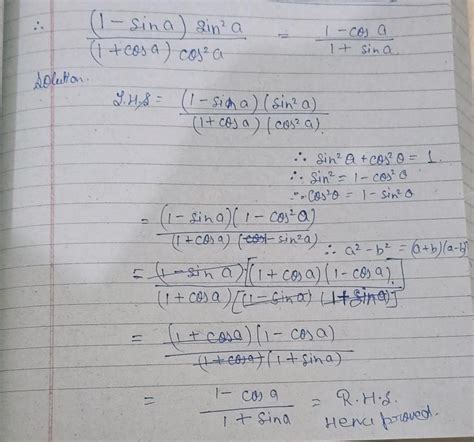 ∴ (1 - sin a) sin² a / (1 + cos a) cos² a = 1 - cos a / 1 + sin a
Solution.
L.H.S = (1 - sin a) (sin² a) / (1 + cos a) (cos² a)
∴ sin² θ + cos² θ = 1
∴ sin² = 1 - cos² θ
∴ cos² θ = 1 - sin² θ
= (1 - sin a) (1 - cos² θ) / (1 + cos a) (cos - sin² a)
∴ a² - b² = (a+b) (a-b)
= (1 - sin a) [(1 + cos a) (1 - cos a)] / (1 + cos a) [(1 - sin a) (1 + sin a)]
= (1 + cos a) (1 - cos a) / (1 + cos a) (1 + sin a)
= 1 - cos a / 1 + sin a = R.H.S.
Hence proved.